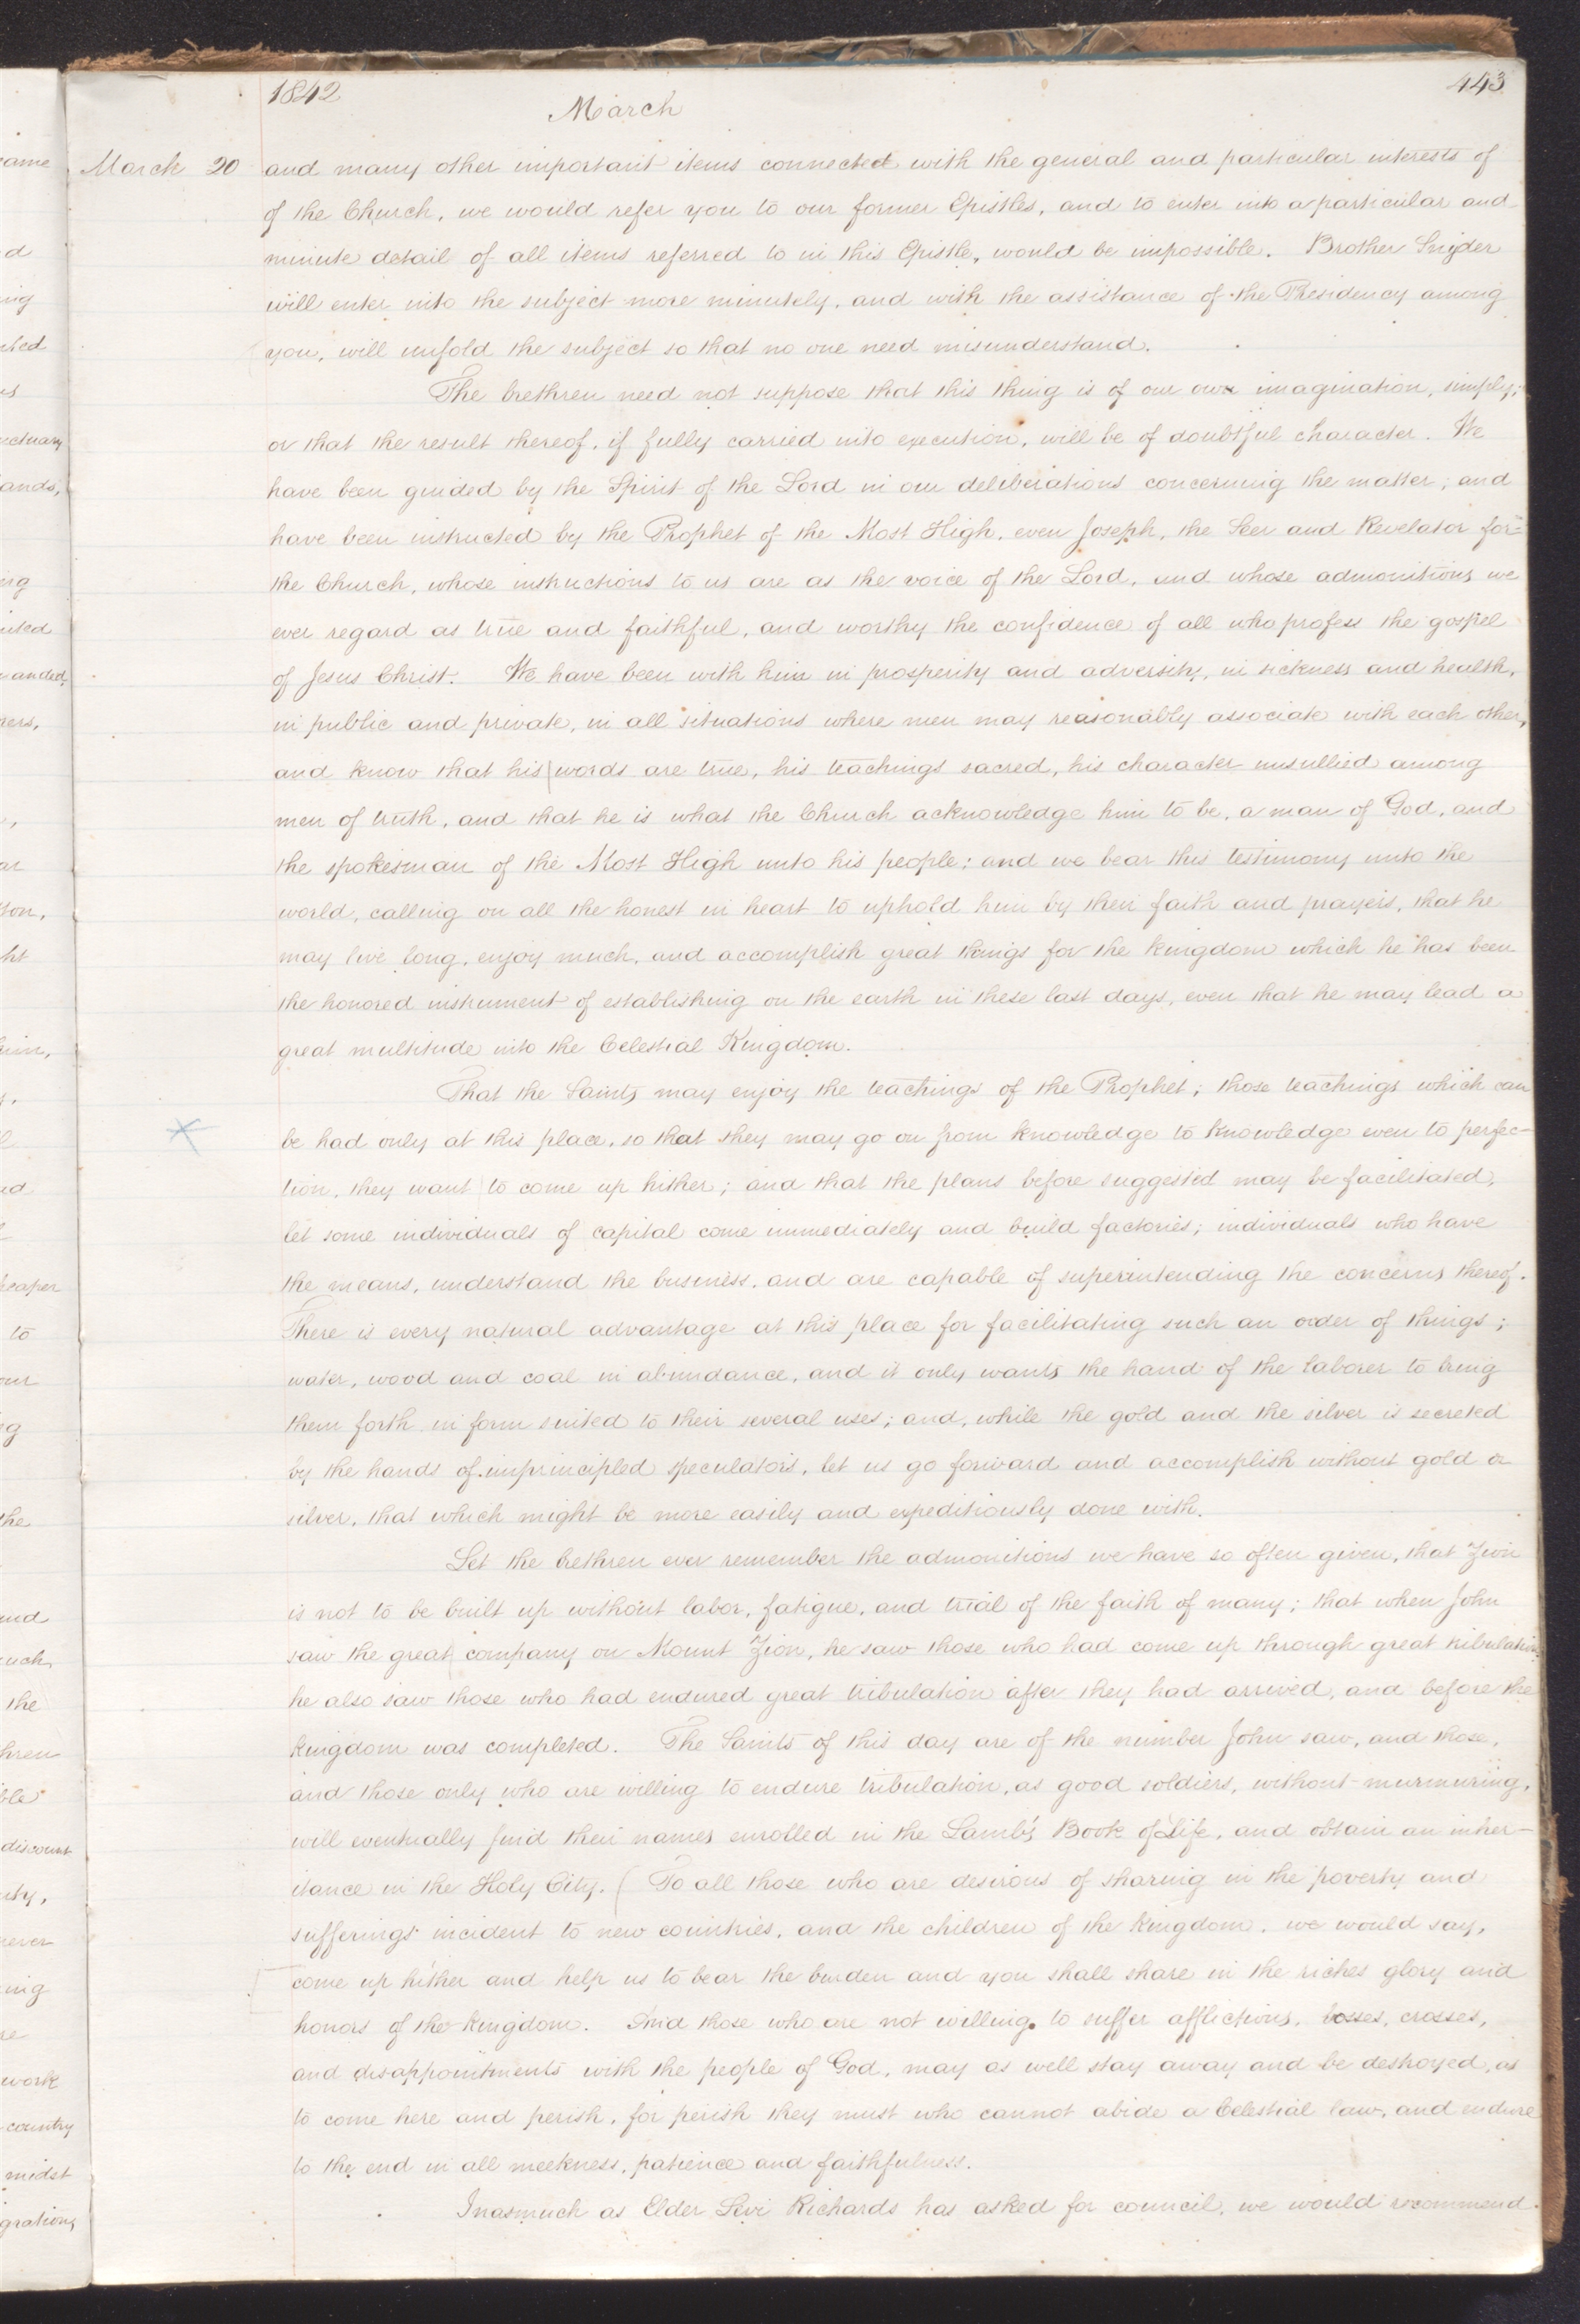 1842
443
March
March 20 and many other important items connected with the general and particular interests of
of the Church, we would refer you to our former Epistles, and to enter into a particular and
minute detail of all items referred to in this Epistle, would be impossible. Brother Snyder
will enter into the subject more minutely, and with the assistance of the Presidency among
you, will unfold the subject so that no one need misunderstand.
The brethren need not suppose that this thing is of our own imagination, simply;
or that the result thereof, if fully carried into execution, will be of doubtful character. We
have been guided by the Spirit of the Lord in our deliberations concerning the matter; and
have been instructed by the Prophet of the Most High, even Joseph, the Seer and Revelator for
the Church, whose instructions to us are as the voice of the Lord, and whose admonitions we
ever regard as true and faithful, and worthy the confidence of all who profess the gospel
of Jesus Christ. We have been with him in prosperity and adversity, in sickness and health,
in public and private, in all situations where men may reasonably associate with each other,
and know that his words are true, his teachings sacred, his character unsullied among
men of truth, and that he is what the Church acknowledge him to be, a man of God, and
the spokesman of the Most High unto his people; and we bear this testimony unto the
world, calling on all the honest in heart to uphold him by their faith and prayers, that he
may live long, enjoy much, and accomplish great things for the kingdom which he has been
the honored instrument of establishing on the earth in these last days, even that he may lead a
great multitude into the Celestial Kingdom.
That the Saints may enjoy the teachings of the Prophet; those teachings which can
be had only at this place, so that they may go on from knowledge to knowledge even to perfec-
tion, they want to come up hither; and that the plans before suggested may be facilitated,
let some individuals of capital come immediately and build factories; individuals who have
the means, understand the business, and are capable of superintending the concerns thereof.
There is every natural advantage at this place for facilitating such an order of things;
water, wood and coal in abundance, and it only wants the hand of the laborer to bring
them forth in form suited to their several uses; and, while the gold and the silver is secreted
by the hands of unprincipled speculators, let us go forward and accomplish without gold or
silver, that which might be more easily and expeditiously done with.
Let the brethren ever remember the admonitions we have so often given, that Zion
is not to be built up without labor, fatigue, and trial of the faith of many; that when John
saw the great company on Mount Zion, he saw those who had come up through great tribulation
he also saw those who had endured great tribulation after they had arrived, and before the
kingdom was completed. The Saints of this day are of the number John saw, and those,
and those only who are willing to endure tribulation, as good soldiers, without murmuring,
will eventually find their names enrolled in the Lamb's Book of Life, and obtain an inher-
itance in the Holy City. ( To all those who are desirous of sharing in the poverty and
sufferings incident to new countries, and the children of the kingdom, we would say,
come up hither and help us to bear the burden and you shall share in the riches glory and
honors of the kingdom. And those who are not willing to suffer afflictions, losses, crosses,
and disappointments with the people of God, may as well stay away and be destroyed, as
to come here and perish, for perish they must who cannot abide a Celestial law, and endure
to the end in all meekness, patience and faithfulness.
Inasmuch as Elder Levi Richards has asked for council, we would recommend